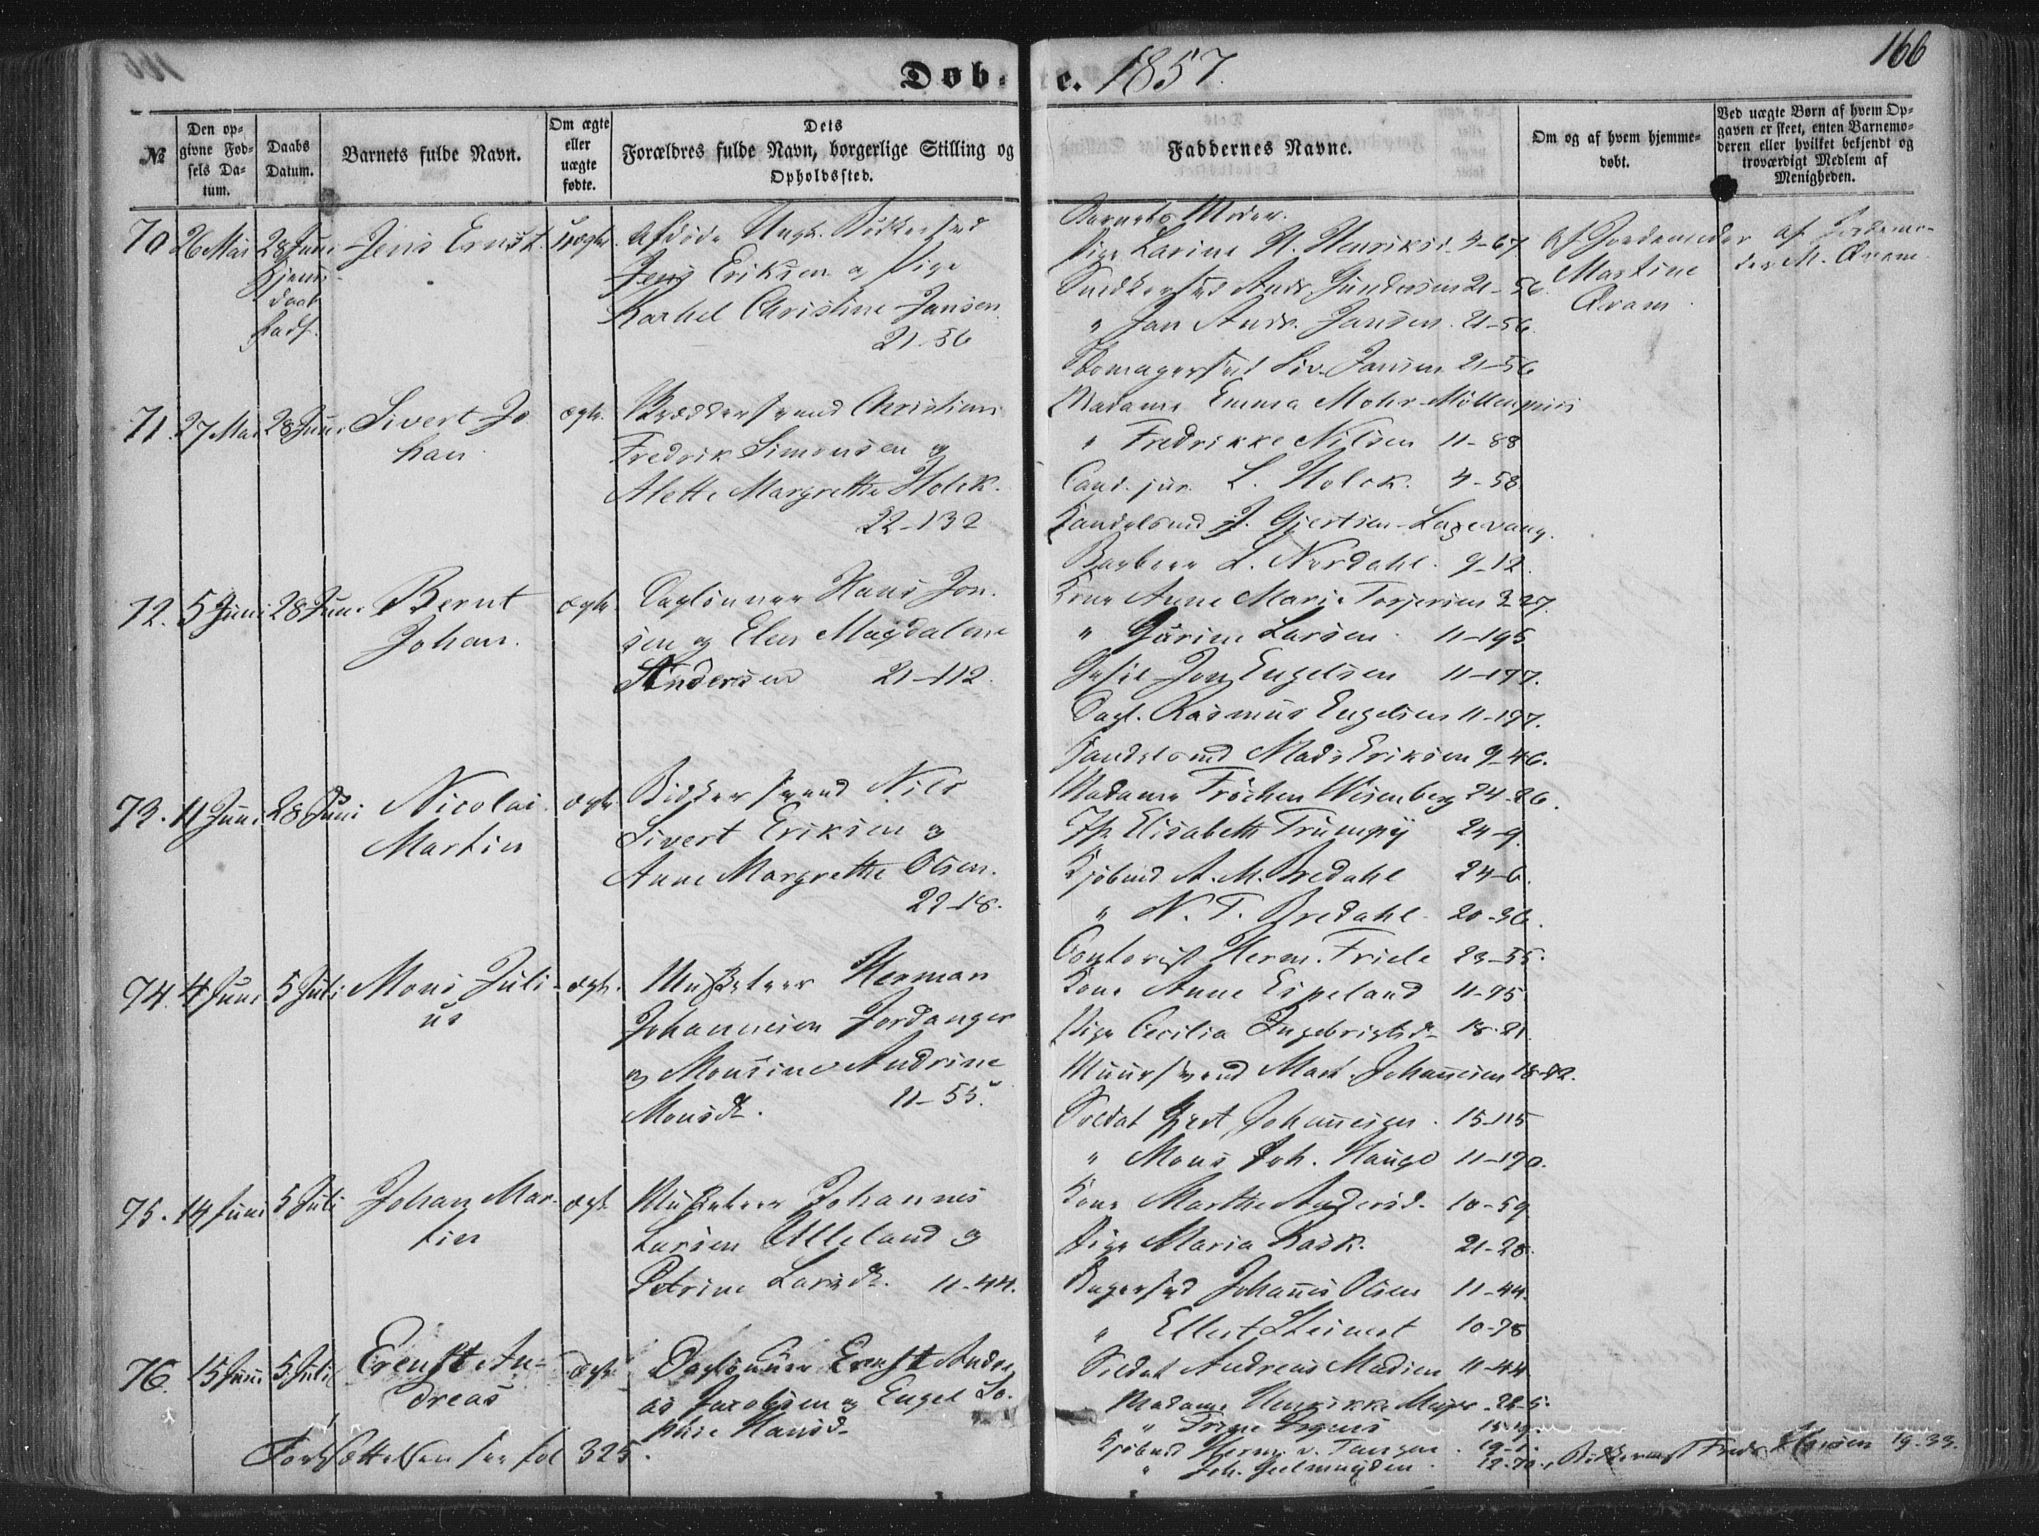 Døbte. 1857.
166
№
Den opgivne Fødsels Datum.
Daabs Datum.
Barnets fulde Navn.
Om ægte eller uægte fødte.
Dets Forældres fulde Navn, borgerlige Stilling og Opholdssted.
Faddernes Navne.
Om og af hvem hjemmedøbt.
Ved uægte Børn af hvem Opgaven er skeet, enten Barnemoderen eller hvilket bekjendt og troværdigt Medlem af Menigheden.
70 26 Mai 28 Juni Jens Ernst. uægte.
Hjem
daab
afdøde Ungk. Bødkersvd
Jens Eriksen og Pige
Rachel Christine Jansen
21-56
Barnets Moder.
Pige Larine H. Henriksd. 3-67
Snedkersvd Andr. Gundersen 21-56.
" Jan Andr. Jansen. 21-56.
Skomagersvd Siv. Jansen 21-56
af Jordemoder
Martine
Qvam
af Jordemo-
der M. Qvam.
71. 27 Mai 28 Juni Sivert Jo
han
ægte.
Fredrik Simonsen og
Alette Margrethe Holck.
22-132
Madame Emma Mohr Möllenpriis
" Fredrikke Nilsen 11-88
Cand. jur. L. Holck. 4-58
Handelsmd J. Gjertsen Laxevaag.
Barbeer L. Nordahl. 9-12.
72. 5 Juni 28 Juni Bernt
Johan.
ægte.
Daglönner Hans Jon-
sen og Elen Magdalene
Andersen 21-112.
Kone Anne Marie Torjersen 2-27.
" Gurine Larsen. 11-195
Jon Engelsen 11-197.
Dagl. Rasmus Engelsen 11-197.
Handelsmd Mads Eriksen 9-46.
73. 11 Juni 28 Juni Nicolai
Martin
ægte
Bödkersvend Nils
Sivert Eriksen og
Anne Margrethe Olsen.
22-18.
Madame Fröchen Wesenberg 24-26.
Jfr Elisabeth Trumpy 24-9.
Kjöbmd A. M. Bredahl 24-6.
" N. T. Bredahl. 20-36.
Contorist Herm. Friele 23-55.
74. 4 Juni 5 Juli Mons Juli-
us
ægte.
Musketeer Herman
Johannesen Jordanger
og Monsine Andrine
Monsdr. 11-55.
Kone Anne Espeland 11-95
Pige Cecilia Ingebrigtsdr 18-21.
Muursvend Mart. Johannesen 18-82.
Soldat Gjert Johannesen. 15-115
" Mons Joh. Hauge 11-170.
75. 14 Juni 5 Juli Johan Mar-
tin
ægte
Musketeer Johannes
Larsen Ulleland og
Petrine Larsdr. 11-44.
Kone Marthe Andersd. 10-59
Pige Maria Rask. 21-28.
Bagersvd Johannes Olsen 11-44.
" Ellert Steinert 10-78
Soldat Andreas Madsen 11-44
76. 15 Juni 5 Juli Ernst An-
dreas
ægte
Daglönner Ernst Andre
as Jacobsen og Engel So-
phie Hansd.
Madame Henrikke Meyer. 22-5.
Kjöbmd Herm. v. Tangen. 19-1.
" Joh. Geelmuyden.
19-33.
Fortsættelsen see fol 325.